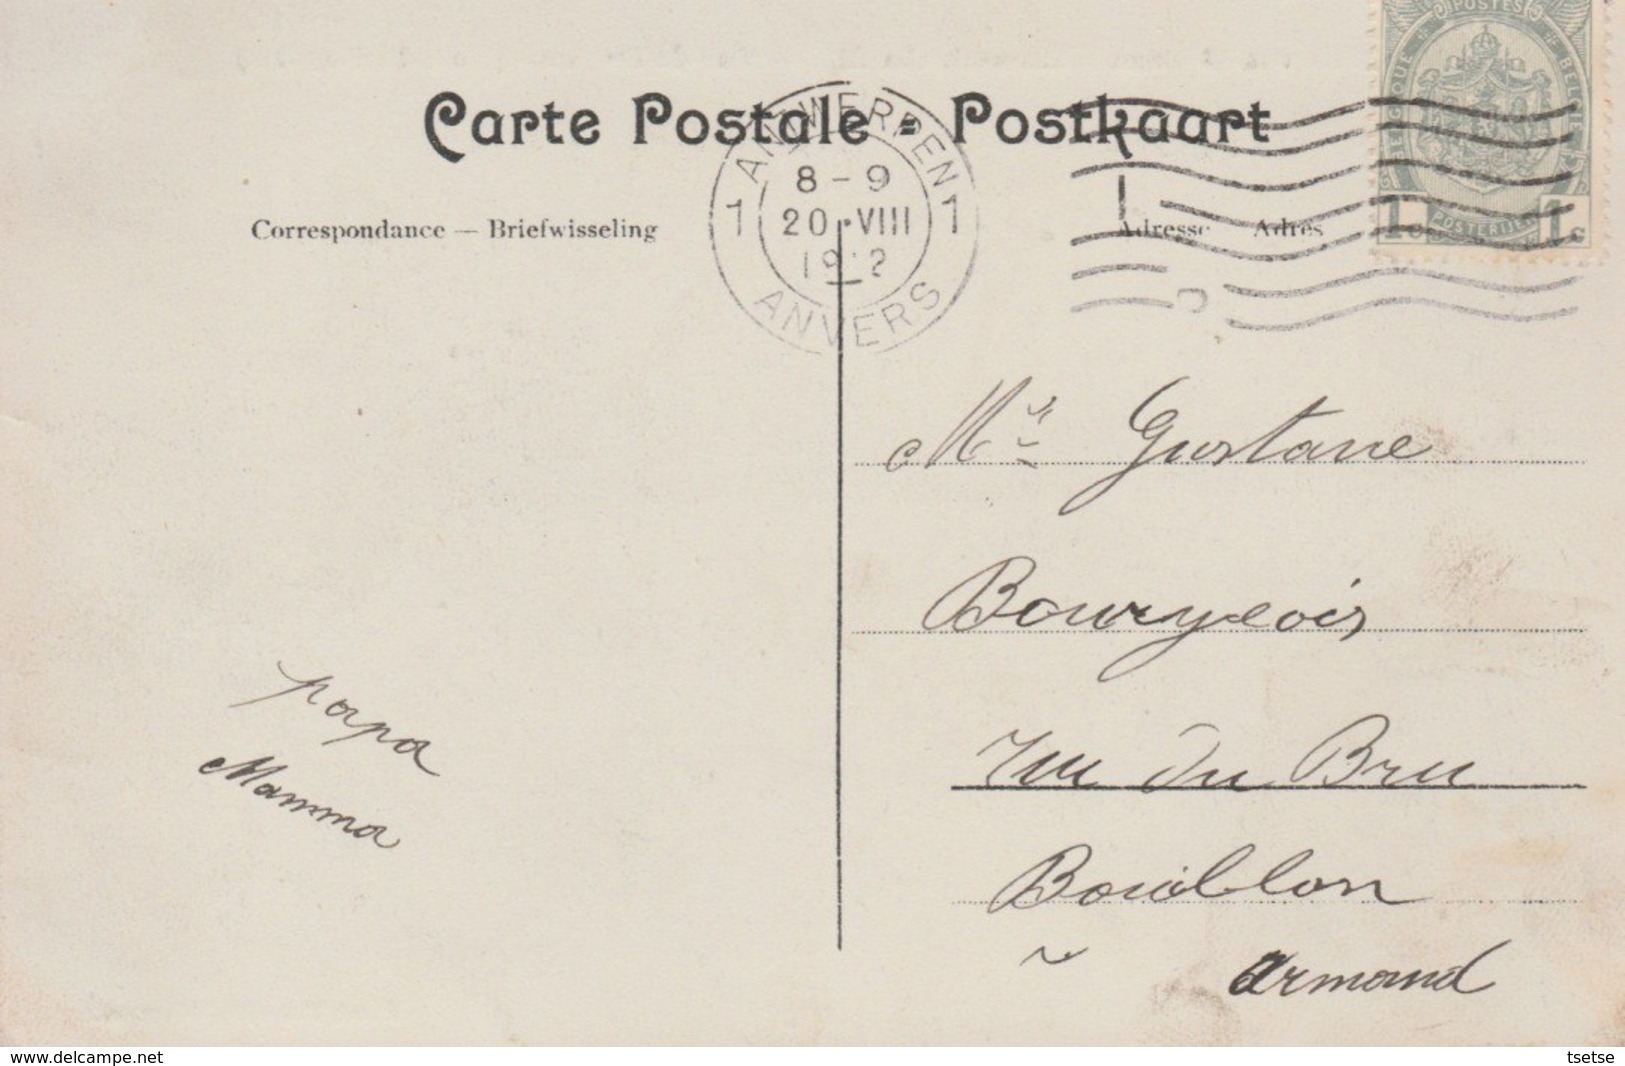 POSTES
BELGIQUE
BELGIE
Carte Postale - Postkaart
ANTWERPEN
8 - 9
1 20 VIII 1
ANVERS
Correspondance — Briefwisseling
Adresse Adres
1c POSTERIJEN 1c
Mr Gustave
Bourgeois
rue du Bru
Bouillon
Armand
papa
Mamma
www.delcampe.net
tsetse